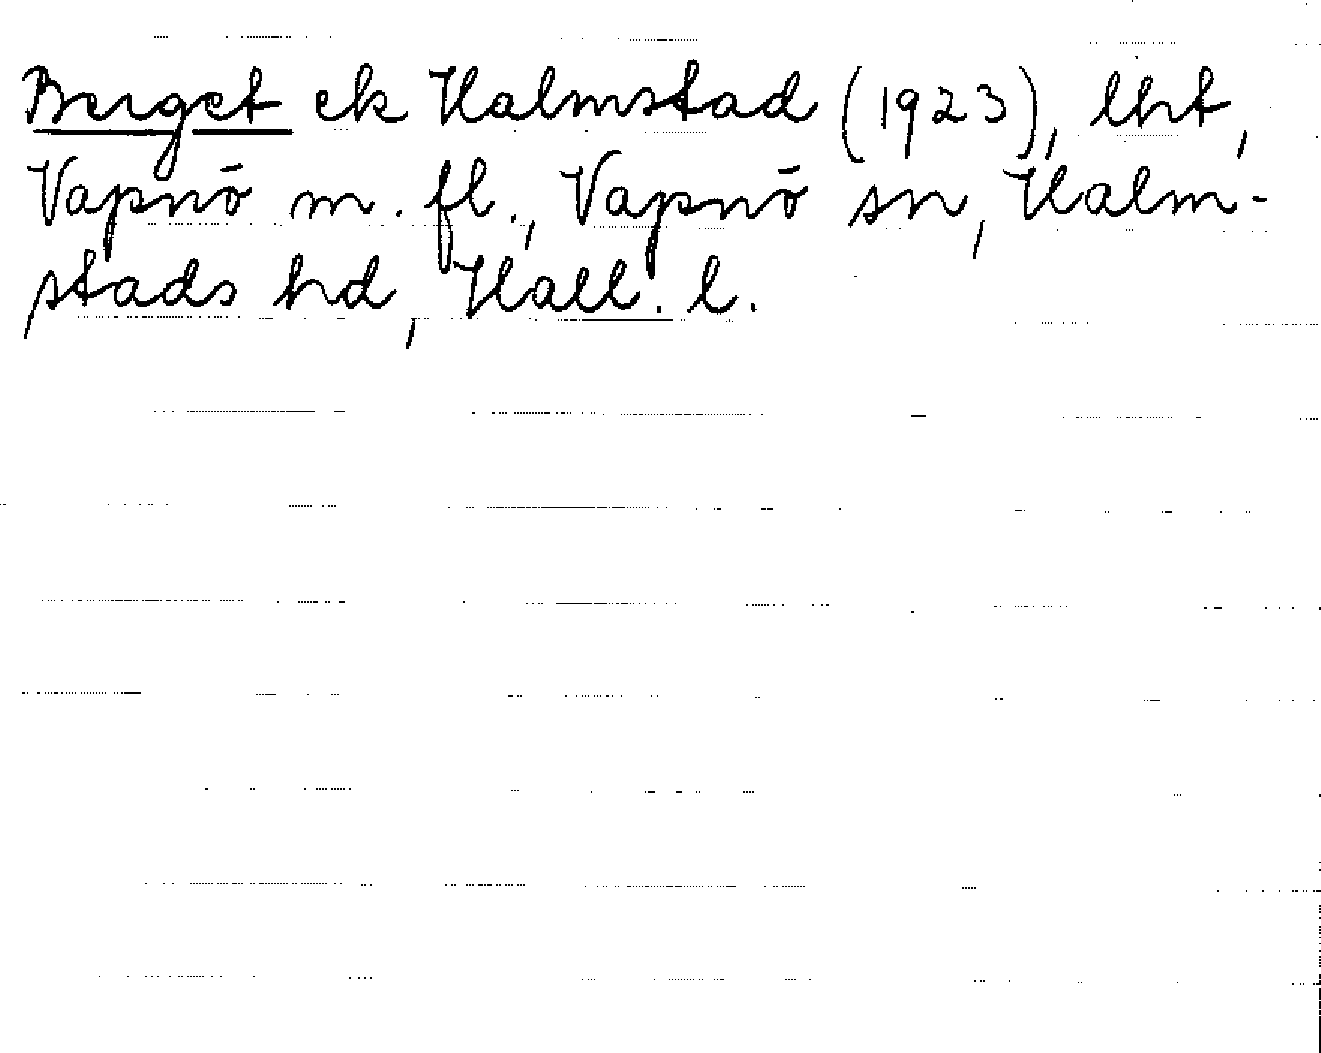 Berget ek Halmstad (1923), lht,
Vapnö m. fl., Vapnö sn, Halm-
stads hd, Hall. l.